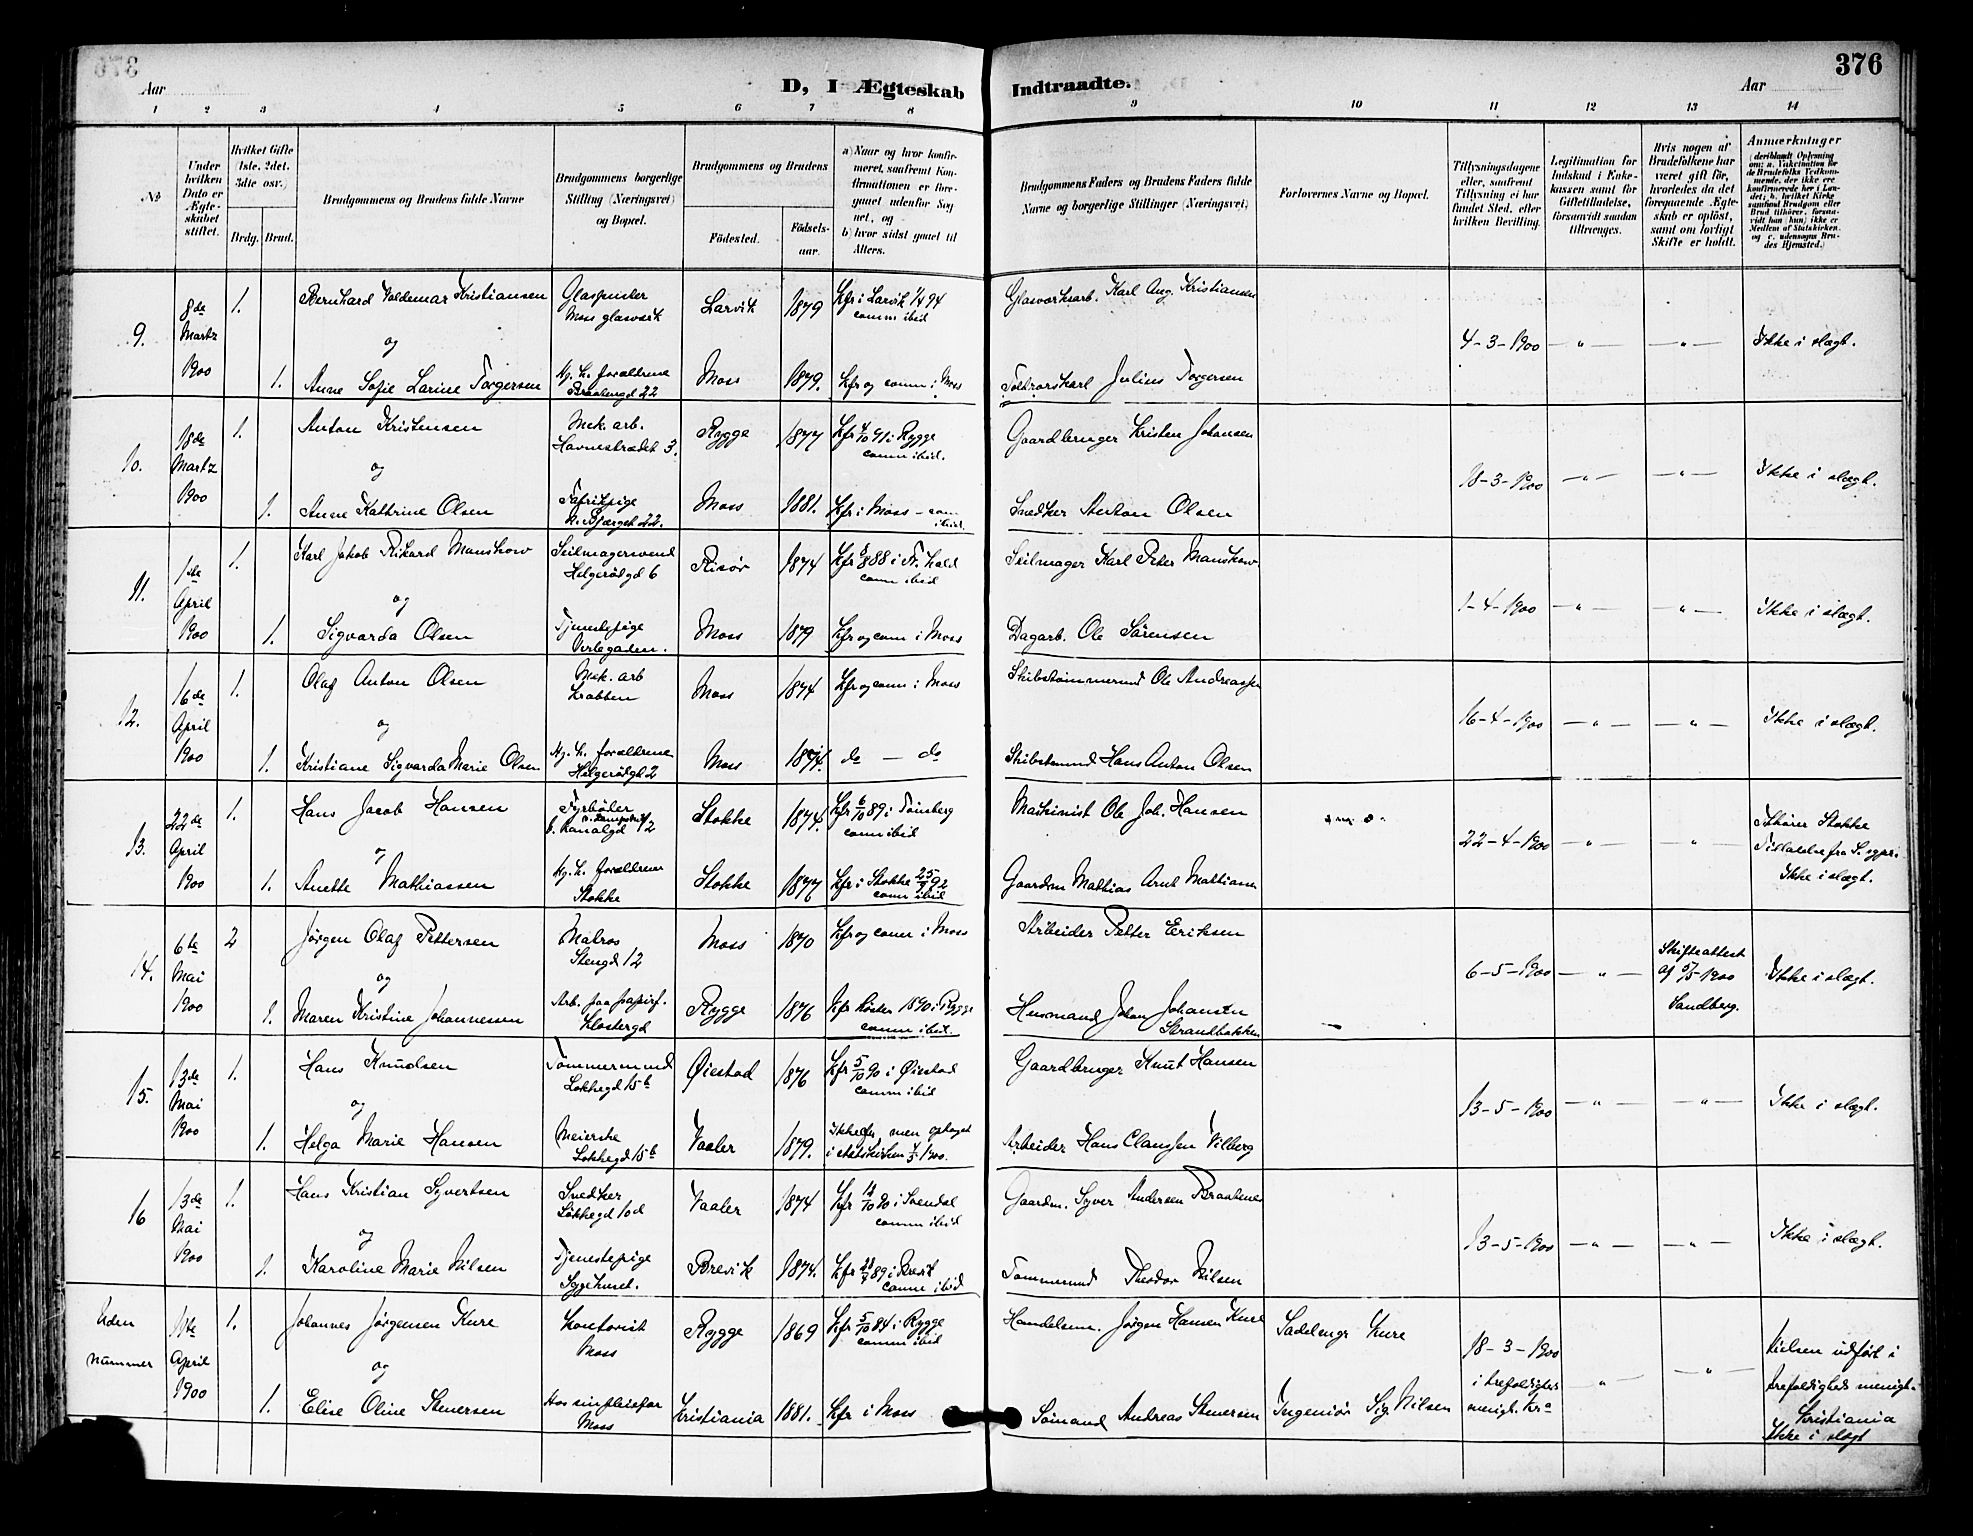 376
Aar
D, I Ægteskab Indtraadte.
Aar
1 2 3 4 5 6 7 8 9 10 11 12 13 14
No
Under hvilken Dato er Ægteskabet stiftet.
Hvilket Gifte (1ste, 2det, 3die osv.)
Brdg. Brud.
Brudgommens og Brudens fulde Navne
Brudgommens borgerlige Stilling (Næringsvei) og Bopæl.
Brudgommens og Brudens
Fødested.
Fødselsaar.
a) Naar og hvor konfirmeret, saafremt Konfirmationen er foregaaet udenfor Sognet, og
b) hvor sidst gaaet til Alters.
Brudgommens Faders og Brudens Faders fulde Navne og borgerlige Stillinger (Næringsvei)
Forlovernes Navne og Bopæl.
Tillysningsdagene eller, saafremt Tillysning ei har fundet Sted, efter hvilken Bevilling.
Legitimation for Indskud i Enkekassen samt for Giftetilladelse, forsaavidt saadan tiltrænges.
Hvis nogen af Brudefolkene har været gift før, hvorledes da det foregaaende Ægteskab er opløst, samt om lovligt Skifte er holdt.
Anmærkninger
9. 8de Martz 1900
1. Bernhard Valdemar Kristiansen Glaspuster Moss glasværk Larvik 1879 Kfr i Larvik 1/4 94 comm ibid Glasværksarb. Karl Aug. Kristiansen
og
1. Anne Sofie Larine Torgersen Hj. h. forældrene 22 Moss 1879. Kfr og comm i Moss Julius Torgersen
4-3-1900 — " — — " — Ikke i slægt.
10. 18de Martz 1900
1. Anton Kristensen Mek. arb. Havnestrædet 3. Rygge 1877 Kfr 4/10 91 i Rygge comm ibid. Gaardbruger Kristen Johansen
og
1. Anne Kathrine Olsen Fabrikpige N. Bjerget 22. Moss 1881. Kfr i Moss – com ibid. Snedker Anton Olsen
18-3-1900 — " — — " — Ikke i slægt.
11. 1ste April 1900
1. Karl Jakob Rikard Manskow Seilmagersvend Helgerødgd 6 Risør 1874 Kfr 88 i Fr. hald comm ibid Seilmager Karl Peter Manskow
og
1. Sigvarda Olsen Tjenestepige Verlegaden. Moss 1879 Kfr og comm i Moss Dagarb. Ole Sørensen
1-4-1900 — " — — " — Ikke i slægt.
12. 16de April 1900
1. Olaf Anton Olsen Mek. arb Krabben Moss 1874 Kfr og comm i Moss Skibstømmermd Ole Andreassen
og
1. Kristiane Sigvarda Marie Olsen Hj. h. forældrene Helgerødgd 2 Moss 1874. do — do Skibstmmd Hans Anton Olsen
16-4-1900 — " — — " — Ikke i slægt.
13. 22de April 1900
1. Hans Jacob Hansen Fyrbøter Kanalgd 12 Stokke 1874. Kfr 6/10 89 i Tønsberg comm ibid Maskinist Ole Joh. Hansen
og
1. Anette Mathiassen Hj. h. forældrene Stokke Stokke 1877 Kfr i Stokke 25/9 92 comm ibid Gaardm Mathias Arnt Mathiasen
22-4-1900 — " — — " — Tilhører Stokke Tilladelse fra S. Ikke i slægt.
14. 6te Mai 1900
2 Jørgen Olaf Pettersen Matros Stengd 12 Moss 1870 Kfr og comm i Moss Arbeider Petter Eriksen
og
1. Maren Kristine Johannessen Arb. paa papirf. Klostergd Rygge 1876 Kfr høsten 1890 i Rygge comm ibid. Husmand Johan Johansen Strandbakken
6-5-1900 — " — Skifteattest af 5/5-1900 Sandberg. Ikke i slægt.
15. 13de Mai 1900
1. Hans Knudsen Tømmermand Løkkegd 15b Øiestad 1876 Kfr 5/10 90 i Øiestad comm ibid Gaardbruger Knut Hansen
og
1. Helga Marie Hansen Meierske Løkkegd 15b Vaaler 1879. Ikke kfr, men optaget i statskirken 1900. Arbeider Hans Claussen Vilberg
13-5-1900 — " — — " — Ikke i slægt.
16 13de Mai 1900
1. Hans Kristian Syvertsen Snedker Løkkegd 10d Vaaler 1874 Kfr 90 i Svendal comm ibid Gaardm. Syver Andersen Braatenes
og
1. Karoline Marie Nilsen Tjenestepige Sygehuset. Brevik 1874. Kfr 89 i Brevik comm ibid Tømmermd Theodor Nilsen
13-5-1900 — " — — " — Ikke i slægt.
Uden nummer April 1900
1. Johannes Jørgensen Kure Kontorist Moss Rygge 1869 Kfr 5/10 84 i Rygge comm ibid Handelsm. Jørgen Hansen Kure Sadelmgr Kure
og
1. Elise Oline Stenersen Hos sin pleiefar Moss Kristiania 1881. Kfr i Moss Sømand Andreas Stenersen Ingeniør Sig. Nilsen
18-3-1900 i trefoldigheds menigh. Kra — " — — " — Vielsen udført i trefoldigheds menigh. Kristiania Ikke i slægt